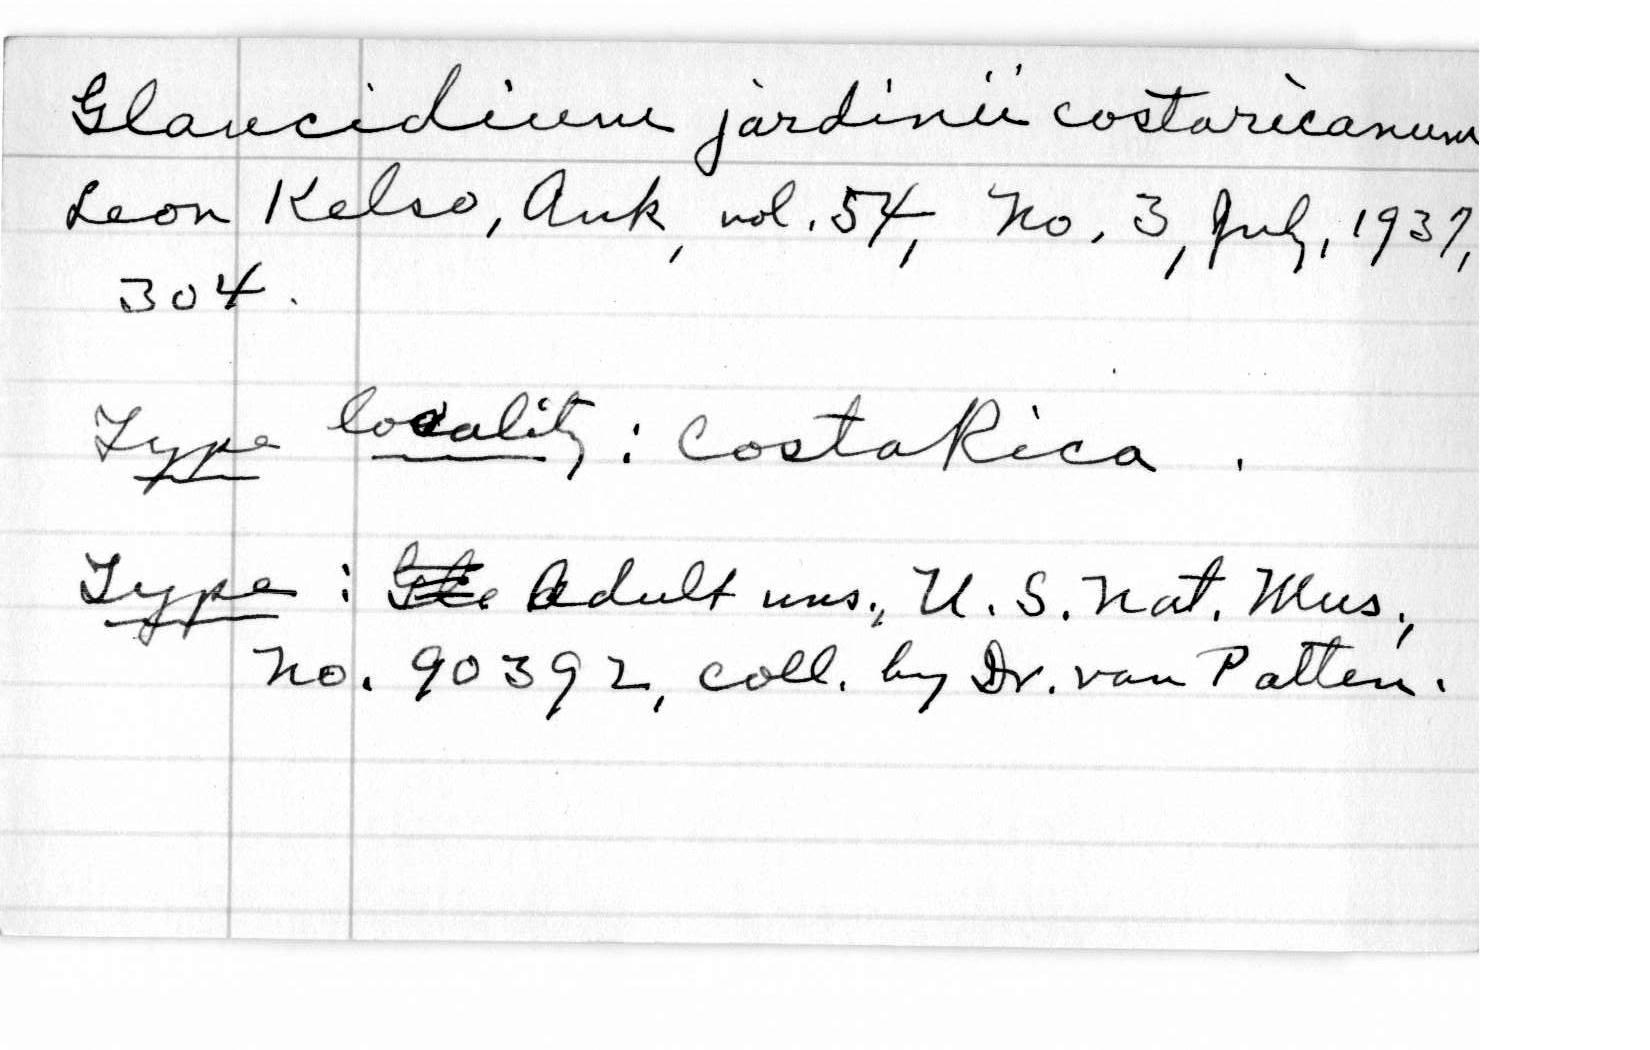 Glaucidium jardinii costaricanum
Leon Kelso, Auk, vol. 54, No. 3, July, 1937,
304.
Type locality: Costa Rica.
Type: Adult uns., U.S. Nat. Mus.,
No. 90392, coll. by Dr. van Patten.